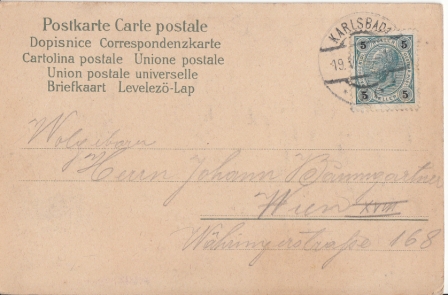 Postkarte Carte postale
Dopisnice Correspondenzkarte
Cartolina postale Unione postale
Union postale universelle
Briefkaart Levelezö-Lap
KARLSBAD
19.
5 5
5 5
Wolgeboren
Herrn Johann Baumgartner
Wien XVIII
Währingerstraße 168